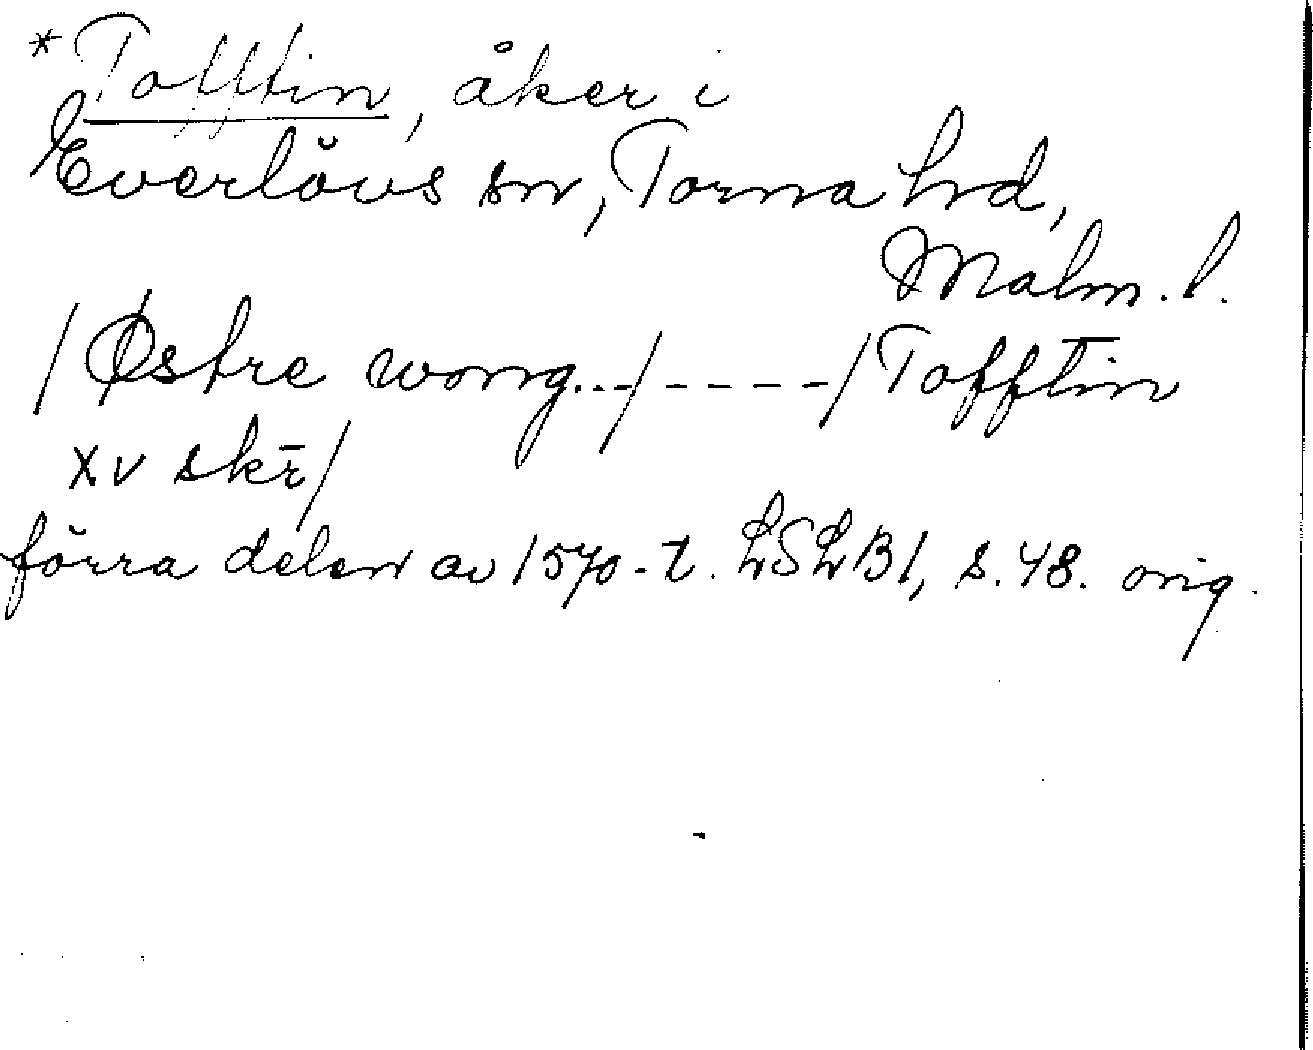 *Tofftin, åker i
Everlövs sn, Torna hd,
Malm. l.
/Østre wong...-/-----/Tofftin
xv skr̄/
förra delen av 1570-t. LSLB1, s. 48. orig.